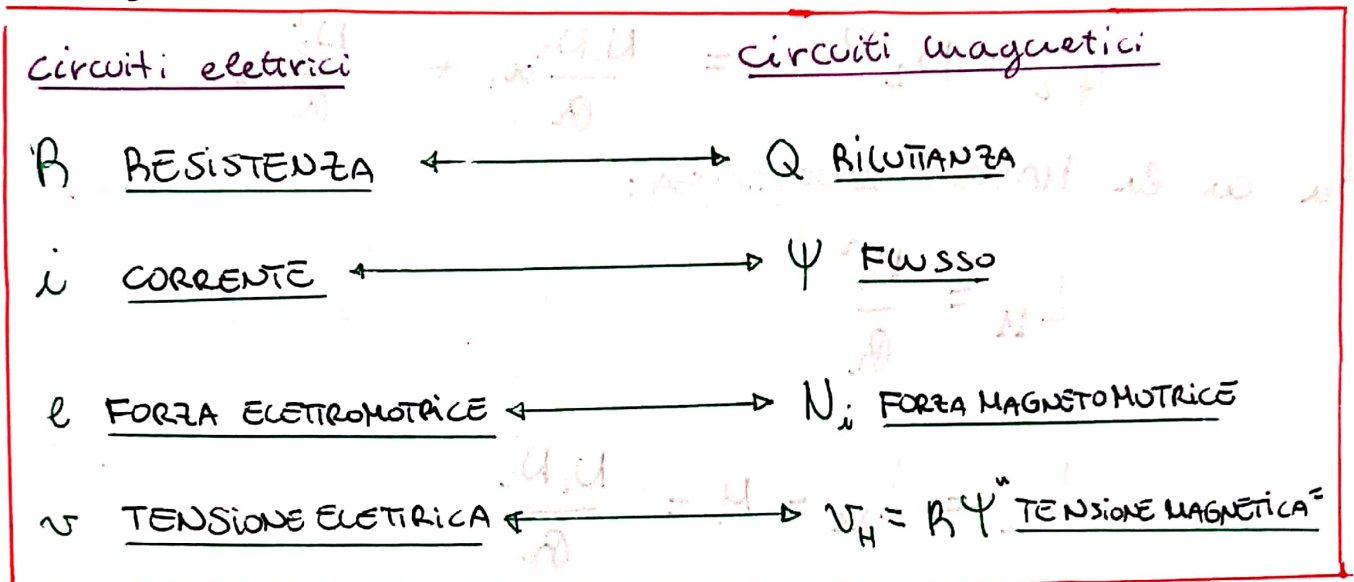 circuiti elettrici circuiti magnetici
R RESISTENZA ↔ Q RILUTTANZA
i CORRENTE ↔ Ψ FLUSSO
e FORZA ELETTROMOTRICE ↔ Ni FORZA MAGNETOMOTRICE
v TENSIONE ELETTRICA ↔ v_H = R Ψ "TENSIONE MAGNETICA"